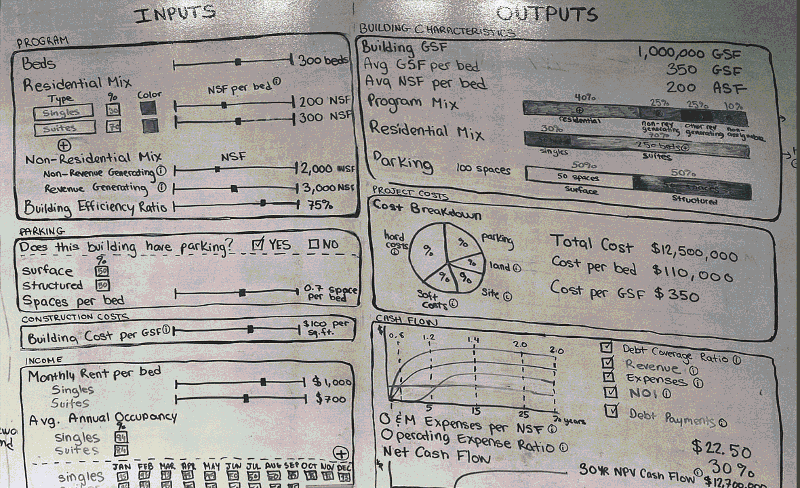 INPUTS
PROGRAM
Beds 300 beds
Residential Mix
Type % Color NSF per bed
Singles 30 200 NSF
Suites 70 300 NSF
Non-Residential Mix NSF
Non-Revenue Generating 2,000 NSF
Revenue Generating 3,000 NSF
Building Efficiency Ratio 75%
PARKING
Does this building have parking? YES NO
%
Surface 50
Structured 50
Spaces per bed 0.7 space per bed
CONSTRUCTION COSTS
Building Cost per GSF $100 per sq.ft.
INCOME
Monthly Rent per bed
Singles $1,000
Suites $700
Avg. Annual Occupancy
%
Singles 94
Suites 94
JAN FEB MAR APR MAY JUN JUL AUG SEP OCT NOV DEC
Singles
OUTPUTS
BUILDING CHARACTERISTICS
Building GSF 1,000,000 GSF
Avg GSF per bed 350 GSF
Avg NSF per bed 200 ASF
Program Mix 40% 25% 25% 10%
residential non-rev generating other rev generating non-assignable
Residential Mix 30% 70%
250 beds
singles suites
Parking 100 spaces 50% 50%
50 spaces
surface structured
PROJECT COSTS
Cost Breakdown
hard costs % parking
% land
% site
% soft costs
%
Total Cost $12,500,000
Cost per bed $110,000
Cost per GSF $350
CASH FLOW
$ 0.8 1.2 1.4 2.0 2.0
5 15 25 years
Debt Coverage Ratio
Revenue
Expenses
NOI
Debt Payments
O&M Expenses per NSF $22.50
Operating Expense Ratio 30%
Net Cash Flow
30YR NPV Cash Flow $12,700,000
$